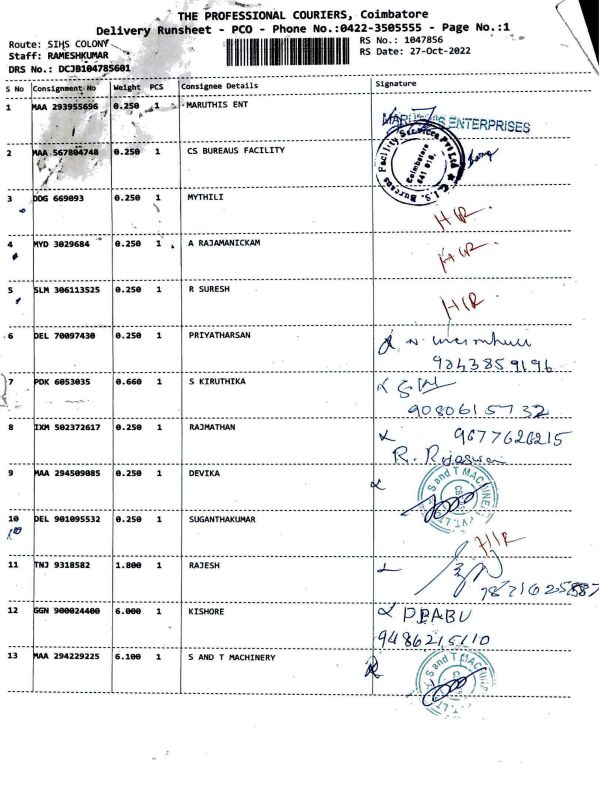 THE PROFESSIONAL COURIERS, Coimbatore
Delivery Runsheet - PCO - Phone No.:0422-3505555 - Page No.:1
Route: SIHS COLONY
RS No.: 1047856
Staff: RAMESHKUMAR
RS Date: 27-Oct-2022
DRS No.: DCJB104785601
S No Consignment No Weight PCS Consignee Details Signature
1 MAA 293955696 0.250 1 MARUTHIS ENT
MARUTHIS ENTERPRISES
2 MAA 567804748 0.250 1 CS BUREAUS FACILITY
C.I.S. Bureaus Facility Services Pvt Ltd
Coimbatore
641 018.
3 DDG 669093 0.250 1 MYTHILI
HIR
4 MYD 3029684 0.250 1 A RAJAMANICKAM
HIR
5 SLM 306113525 0.250 1 R SURESH
HIR
6 DEL 70097430 0.250 1 PRIYATHARSAN
9243859196
7 PDK 6053035 0.660 1 S KIRUTHIKA
9080615732
8 IXM 502372617 0.250 1 RAJMATHAN
9677626215
9 MAA 294509085 0.250 1 DEVIKA
S and T MACHINE
10 DEL 901095532 0.250 1 SUGANTHAKUMAR
HIR
11 TNJ 9318582 1.800 1 RAJESH
12 GGN 900024400 6.000 1 KISHORE
PRABU
9486215110
13 MAA 294229225 6.100 1 S AND T MACHINERY
S and T MACHINE